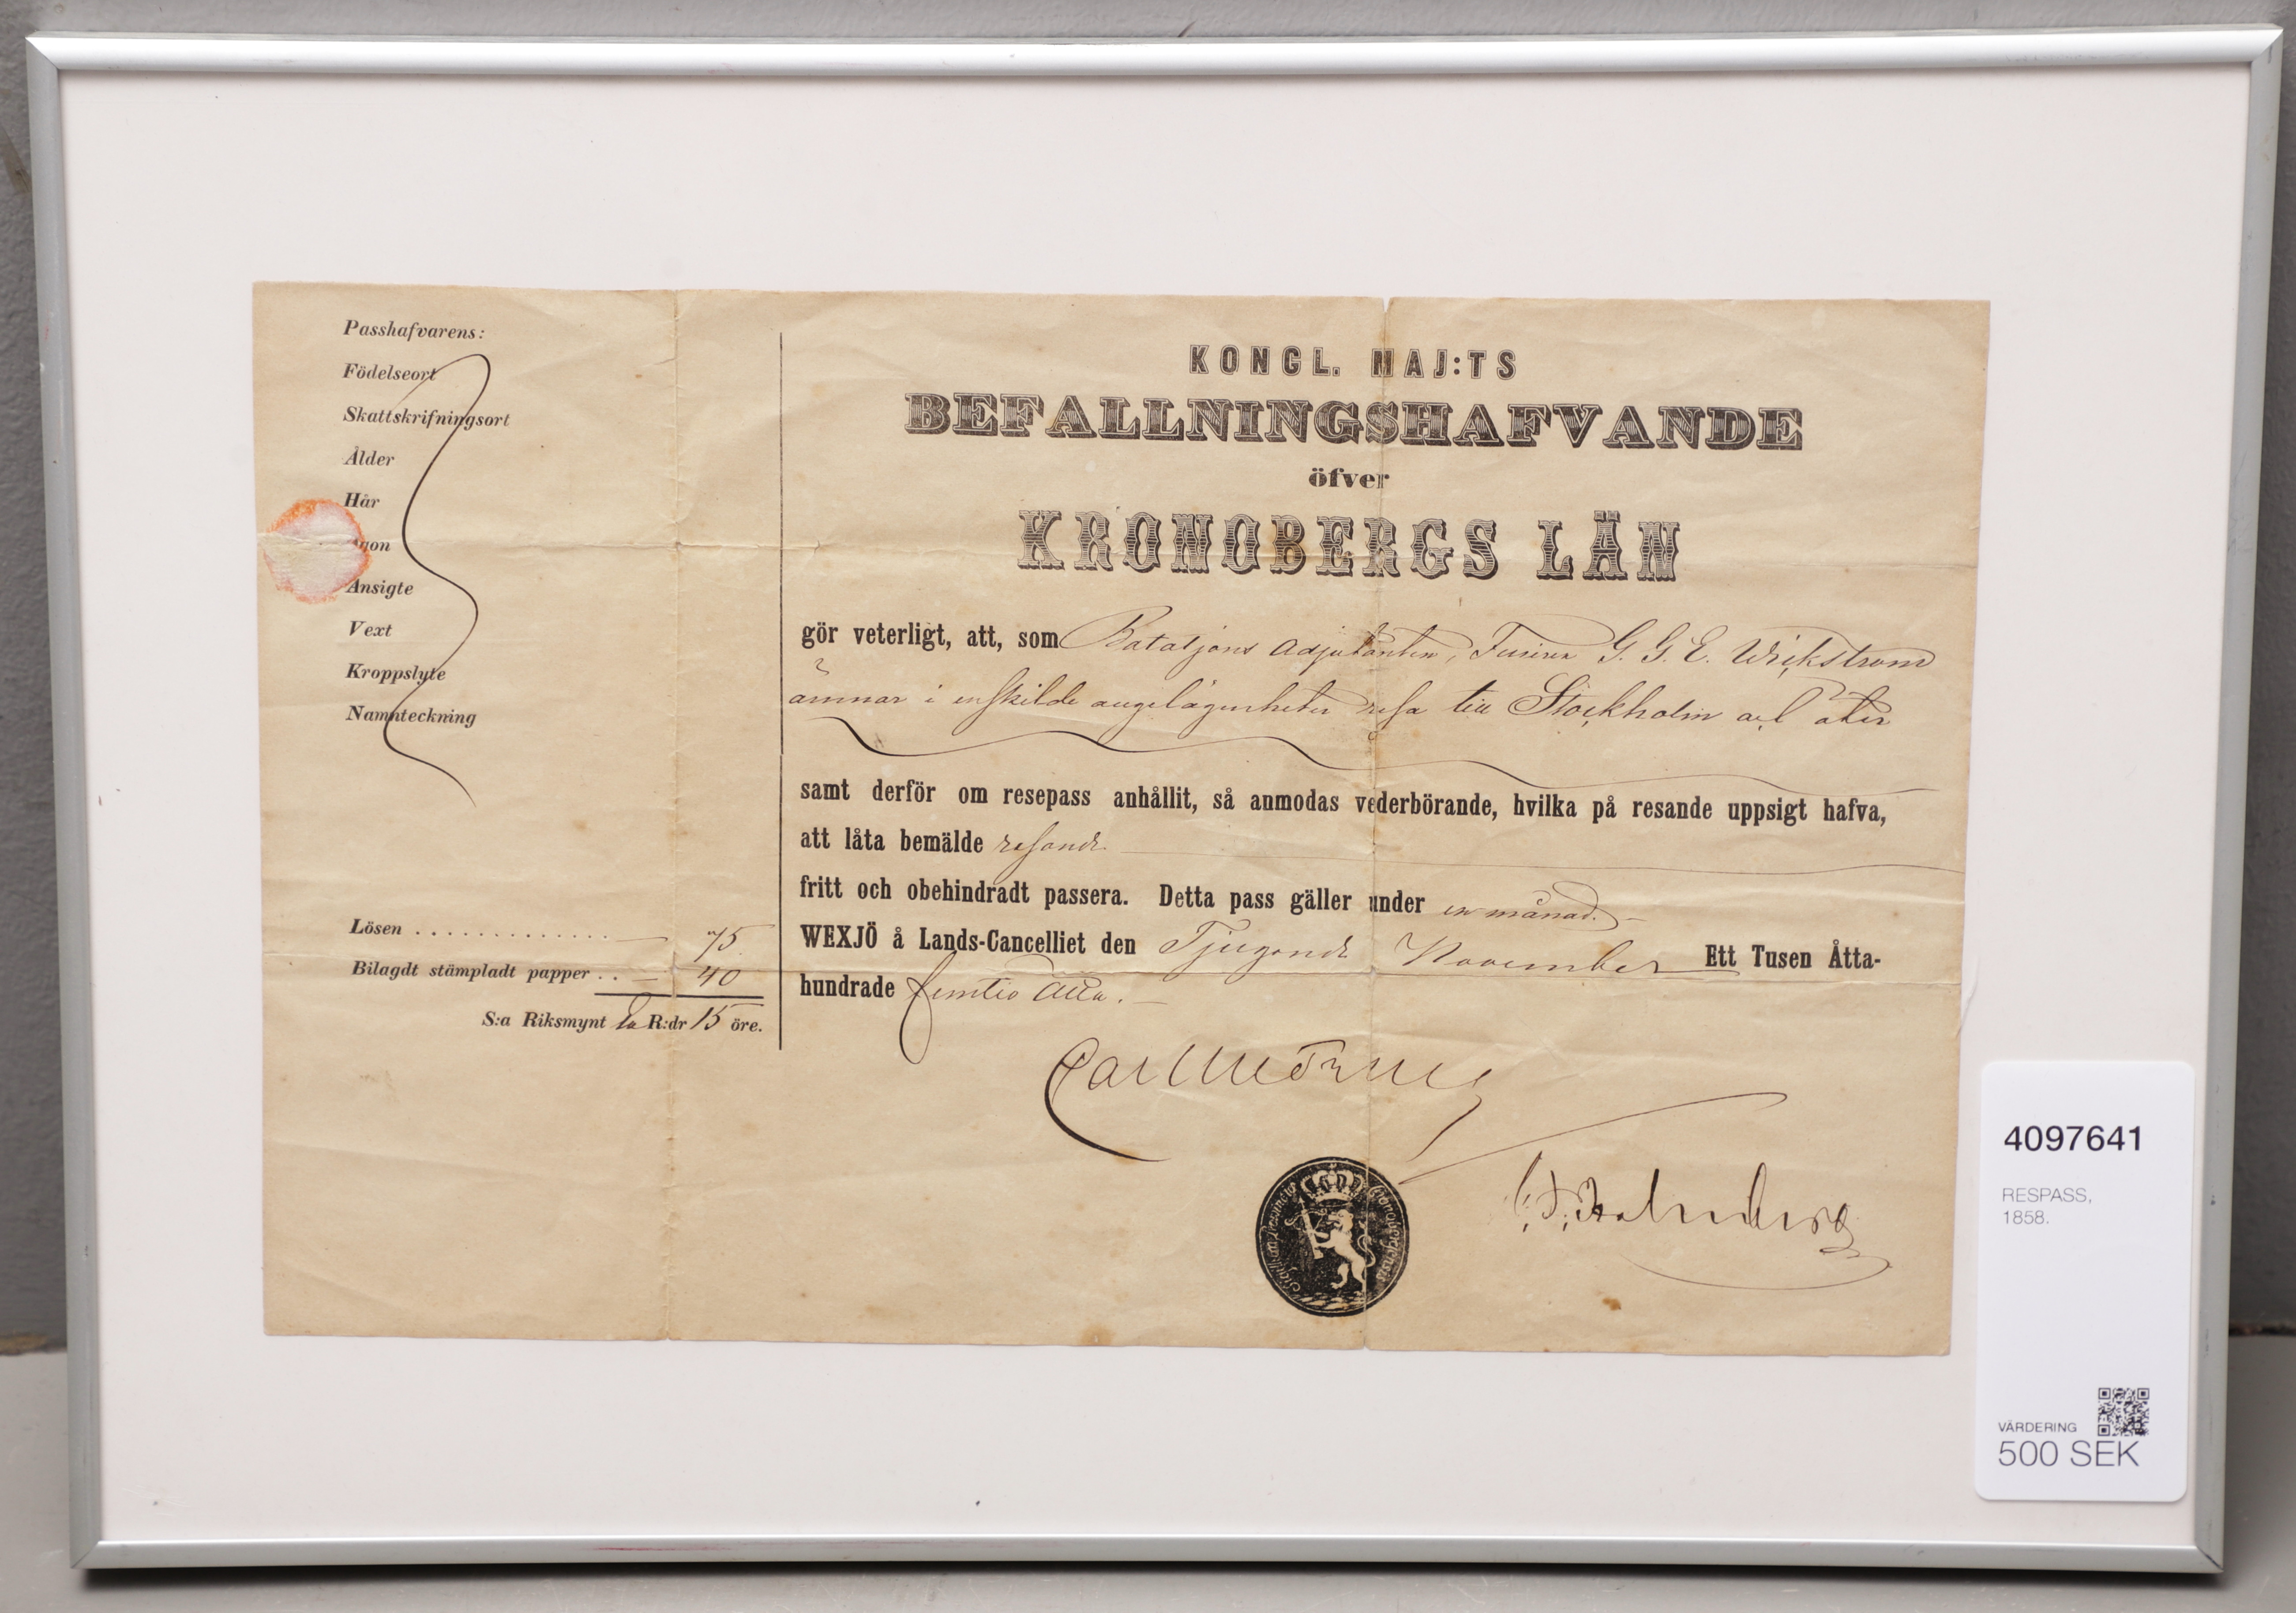 Passhafvarens:
Födelseort
Skattskrifningsort
Ålder
Hår
Ögon
Ansigte
Vext
Kroppslyte
Namnteckning
Lösen . . . . . . . . . . . . . 75
Bilagdt stämpladt papper . . 40
S:a Riksmynt En R:dr 15 öre.
KONGL. MAJ:TS
BEFALLNINGSHAFVANDE
öfver
KRONOBERGS LÄN
gör veterligt, att, som Bataljons Adjutanten, G. G. E. Wickström
ämnar i enskilde angelägenheter resa till Stockholm och åter
samt derför om resepass anhållit, så anmodas vederbörande, hvilka på resande uppsigt hafva,
att låta bemälde resande
fritt och obehindradt passera. Detta pass gäller under en månad.
WEXJÖ å Lands-Cancelliet den Tjugonde November Ett Tusen Åtta-
hundrade femtio åtta.
Carl Mörner
4097641
RESPASS,
1858.
VÄRDERING
500 SEK